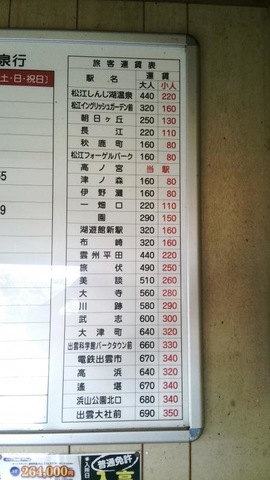 泉行
土・日・祝日]
5
9
旅客運賃表
駅名 運賃
大人 小人
松江しんじ湖温泉 440 220
松江イングリッシュガーデン前 320 160
朝日ヶ丘 250 130
長江 220 110
秋鹿町 160 80
松江フォーゲルパーク 160 80
高ノ宮 当駅
津ノ森 160 80
伊野灘 160 80
一畑口 220 110
園 290 150
湖遊館新駅 320 160
布崎 320 160
雲州平田 440 220
旅伏 490 250
美談 510 260
大寺 560 280
川跡 580 290
武志 600 300
大津町 640 320
出雲科学館パークタウン前 660 330
電鉄出雲市 670 340
高浜 640 320
遙堪 670 340
浜山公園北口 680 340
出雲大社前 690 350
264,000円
普通免許